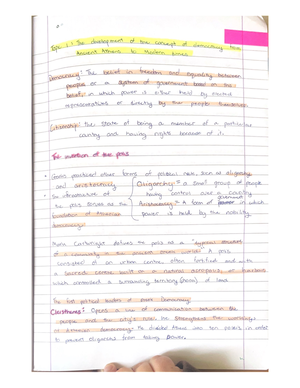 Topic 1: The development of the concept of democracy from
Ancient Athens to Modern times
Democracy: The belief in freedom and equality between
people or a system of government based on this
belief, in which power is either held by elected
representatives or directly by the people themselves.
Citizenship: The state of being a member of a particular
country and having rights because of it.
The invention of the polis
Greece practiced other forms of political rule, such as oligarchy
and aristocracy
Oligarchy: a small group of people
having control over a country
Aristocracy: A form of government in which
power is held by the nobility.
The introduction of
the polis served as the
foundation of Athenian
democracy.
Paul Cartledge defines the polis as a "typical structure
of a community in the ancient Greek world". A polis
consisted of an urban centre, often fortified and with
a sacred centre built on a natural acropolis or harbour,
which controlled a surrounding territory of land
The first political bodies of Greek Democracy
Cleisthenes: Opens a line of communication between the
people and the city's rulers
in Athenian democracy. He divided Athens into ten in order
to prevent oligarchs from taking power.